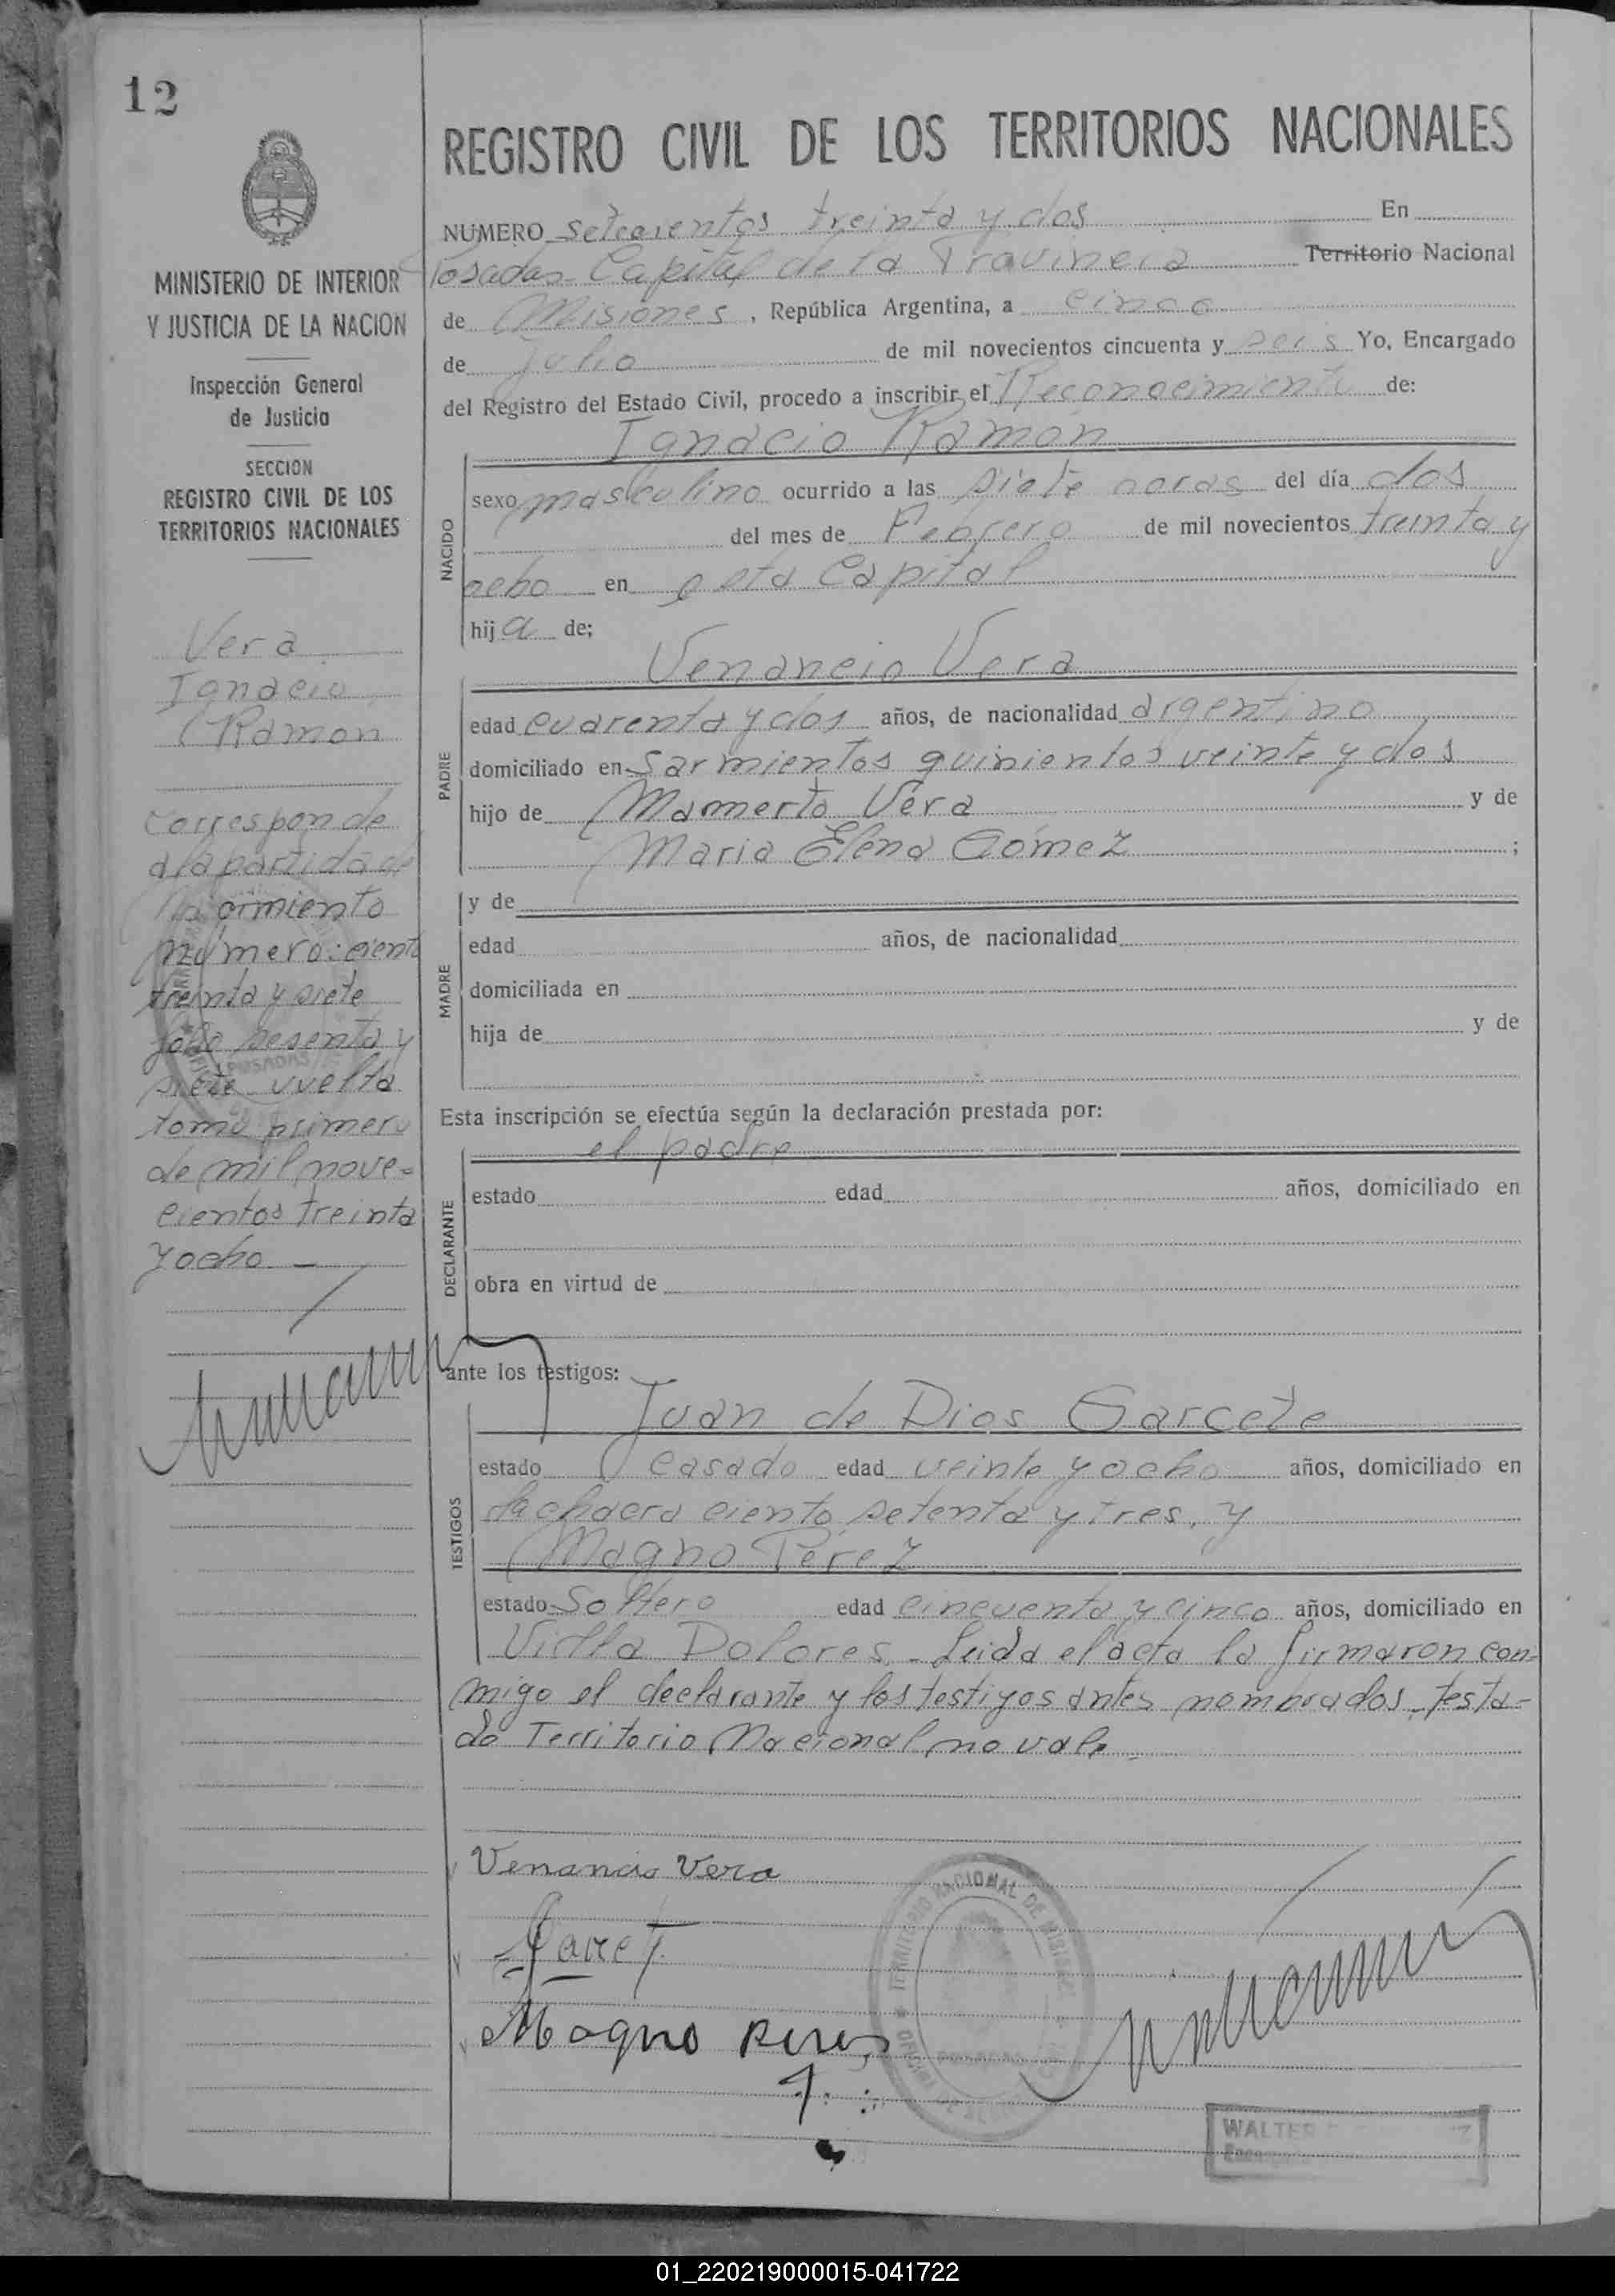 12
MINISTERIO DE INTERIOR
Y JUSTICIA DE LA NACION
Inspección General
de Justicia
SECCION
REGISTRO CIVIL DE LOS
TERRITORIOS NACIONALES
Vera
Ignacio
Ramon
Corresponde
a la partida de
Nacimiento
número: ciento
treinta y siete
folio sesenta y
siete vuelta
tomo primero
de mil nove-
cientos treinta
y ocho
REGISTRO CIVIL DE LOS TERRITORIOS NACIONALES
NUMERO setecientos treinta y dos En
Posadas Capital de la Provincia Territorio Nacional
de Misiones, República Argentina, a cinco
de Julio de mil novecientos cincuenta y seis Yo, Encargado
del Registro del Estado Civil, procedo a inscribir el Reconocimiento de:
Ignacio Ramon
NACIDO
sexo masculino ocurrido a las siete horas del día dos
del mes de Febrero de mil novecientos treinta y
ocho en esta Capital
hija de;
Venancio Vera
PADRE
edad cuarenta y dos años, de nacionalidad argentino
domiciliado en Sarmientos quinientos veinte y dos
hijo de Mamerto Vera y de
Maria Elena Gómez ;
y de
MADRE
edad años, de nacionalidad
domiciliada en
hija de y de
Esta inscripción se efectúa según la declaración prestada por:
el padre
DECLARANTE
estado edad años, domiciliado en
obra en virtud de
ante los testigos:
Juan de Dios Garcete
TESTIGOS
estado Casado edad veinte y ocho años, domiciliado en
chacra ciento setenta y tres, y
Magno Perez
estado Soltero edad cincuenta y cinco años, domiciliado en
Villa Dolores. Leida el acta la firmaron con-
migo el declarante y los testigos antes nombrados. testa-
do Territorio Nacional no vale
Venancio Vera
Magno Perez
TERRITORIO NACIONAL DE MISIONES
POSADAS
WALTER
01_220219000015-041722